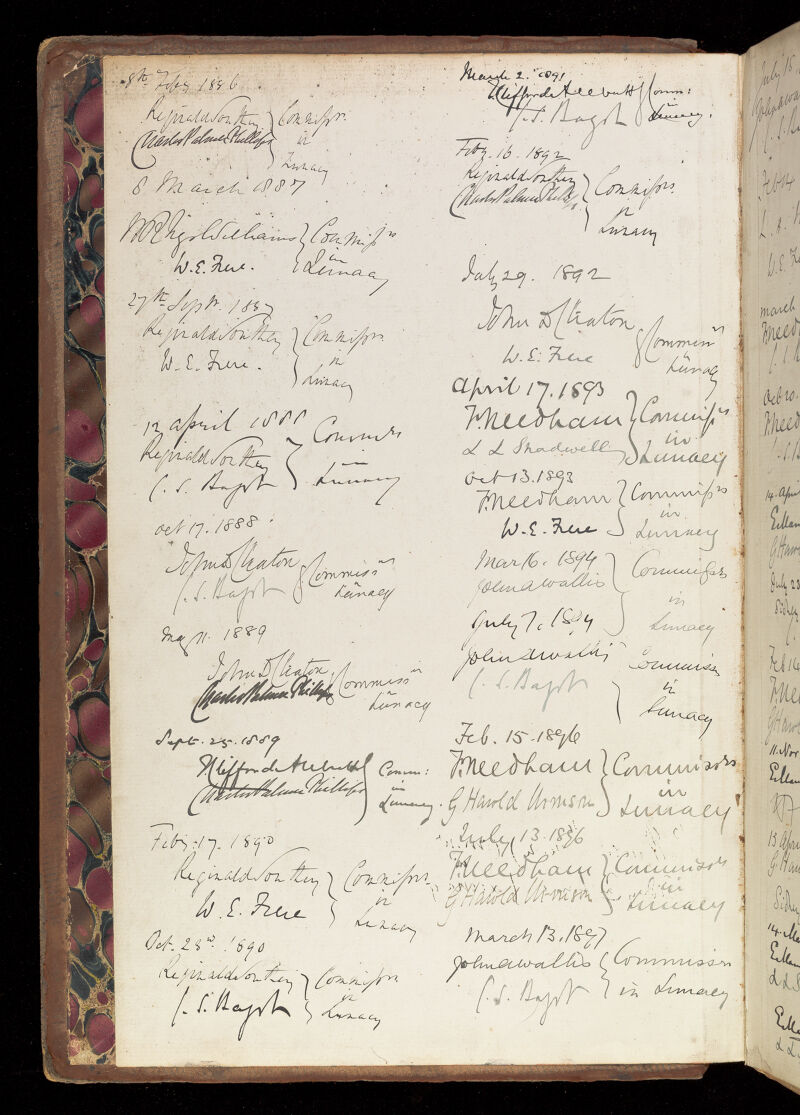 8th Feby 1886
Reginald Southey
Charles Palmer Phillips
Commissrs
in
Lunacy
8 March 1887
Williams
W. E. Frere.
Commissrs
in
Lunacy
27th Septr. 1887
Reginald Southey
W. E. Frere.
Commissrs
in
Lunacy
12 april 1888
Reginald Southey
C. S. Bagot
Commrs
in
Lunacy
Oct 17. 1888.
John D Cleaton
C. S. Bagot
Commissrs
in
Lunacy
May 11. 1889
John D Cleaton
Charles Palmer Phillips
Commissrs
in
Lunacy
Sept. 25. 1889
T Clifford Allbutt
Charles Palmer Phillips
Comm:
in
Lunacy.
Feby. 17. 1890
Reginald Southey
W. E. Frere
Commissrs
in
Lunacy
Oct. 23rd. 1890
Reginald Southey
C. S. Bagot
Commissrs
in
Lunacy
March 2. 1891
T Clifford Allbutt
C. S. Bagot
Comm:
in
Lunacy.
Feby. 16. 1892
Reginald Southey
Charles Palmer Phillips
Commissrs
in
Lunacy
July 29. 1892
John D Cleaton
W. E. Frere
Commissrs
in
Lunacy
April 17. 1893
F. Needham
L L Shadwell
Commissrs
in
Lunacy
Oct 13. 1893
F. Needham
W. E. Frere
Commissrs
in
Lunacy
Mar 16. 1894
John A Wallis
Commissrs
in
Lunacy
July 7. 1894
John A Wallis
C. S. Bagot
Commissrs
in
Lunacy
Feb. 15. 1896
F. Needham
G Harold Urmson
Commissrs
in
Lunacy
July 13. 1896
F. Needham
G Harold Urmson
Commissrs
in
Lunacy
March 13. 1897
John A Wallis
C. S. Bagot
Commissrs
in Lunacy